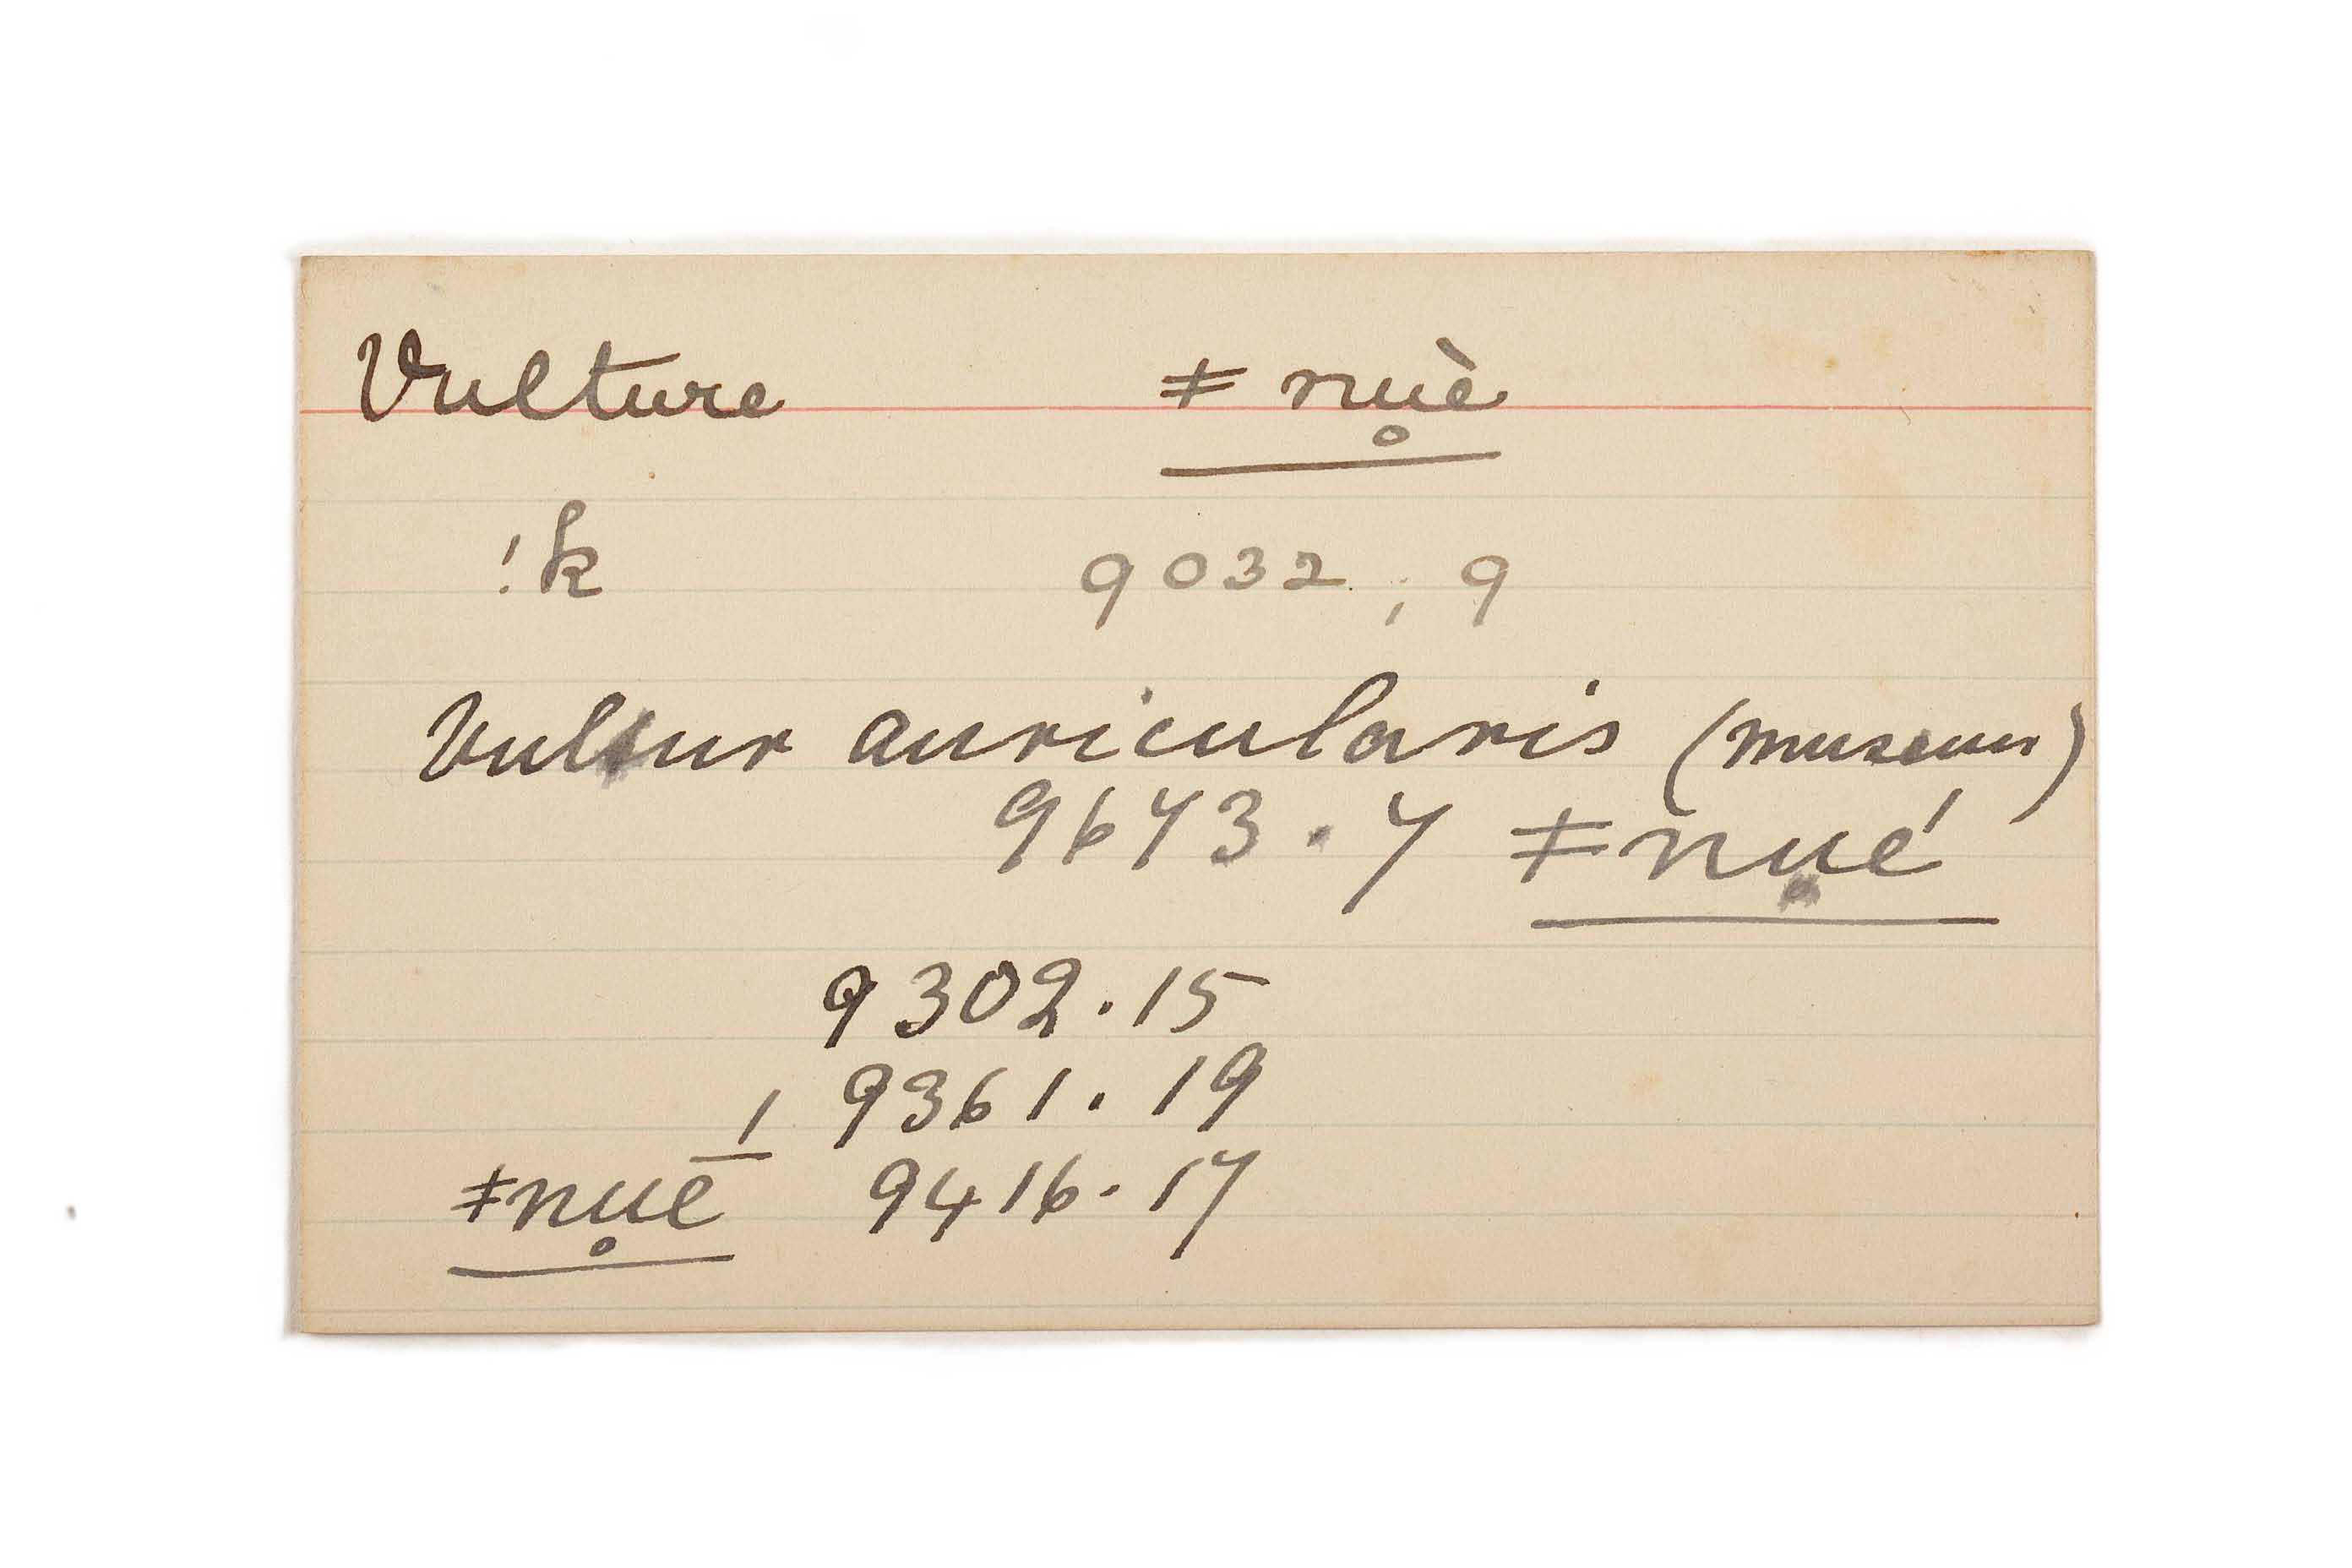 Vulture ǂnu̥è
!k 9032, 9
Vultur auricularis (museum)
9673.7 ǂnu̥é
9302.15
9361.19
ǂnu̥é̱ 9416.17